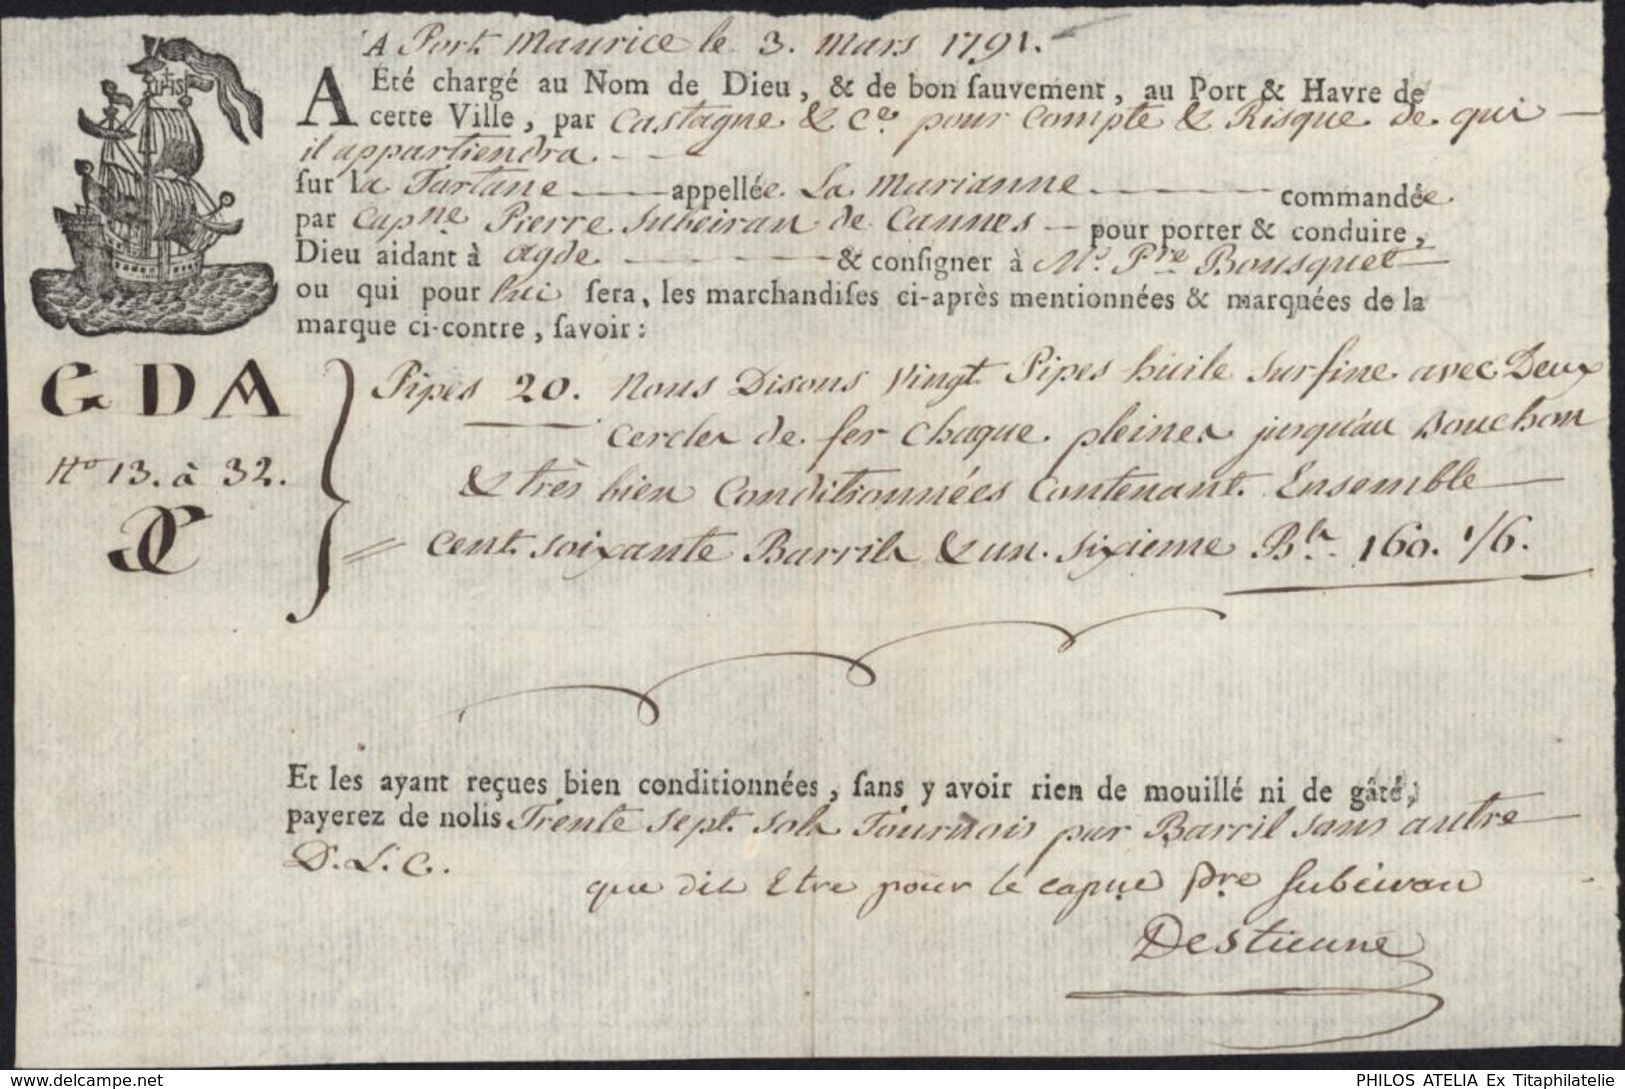 A Port Maurice le 3. Mars 1791.
A Eté chargé au Nom de Dieu, & de bon sauvement, au Port & Havre de
cette Ville, par Castagne & Ce. pour Compte & Risque de qui
il appartiendra.
sur la Tartane appellée La Marianne commandée
par Capne. Pierre Subeiran de Cannes pour porter & conduire,
Dieu aidant à Agde & consigner à Mr. Pre Bousquet
ou qui pour lui sera, les marchandises ci-après mentionnées & marquées de la
marque ci-contre, savoir:
GDA
No 13. à 32.
Pipes 20. Nous Disons Vingt Pipes huile Surfine avec Deux
Cercles de fer Chaque pleines jusqu'au Bouchon
& très bien Conditionnées Contenant Ensemble
Cent Soixante Barrils & un Sixieme Bls. 160. 1/6.
Et les ayant reçues bien conditionnées, sans y avoir rien de mouillé ni de gâté,
payerez de nolis Trente Sept Sols Tournois par Barril Sans autre
D. L. C.
que dit Etre pour le capne pre Subeiran
Destienne
PHILOS ATELIA Ex Titaphilatelie
www.delcampe.net